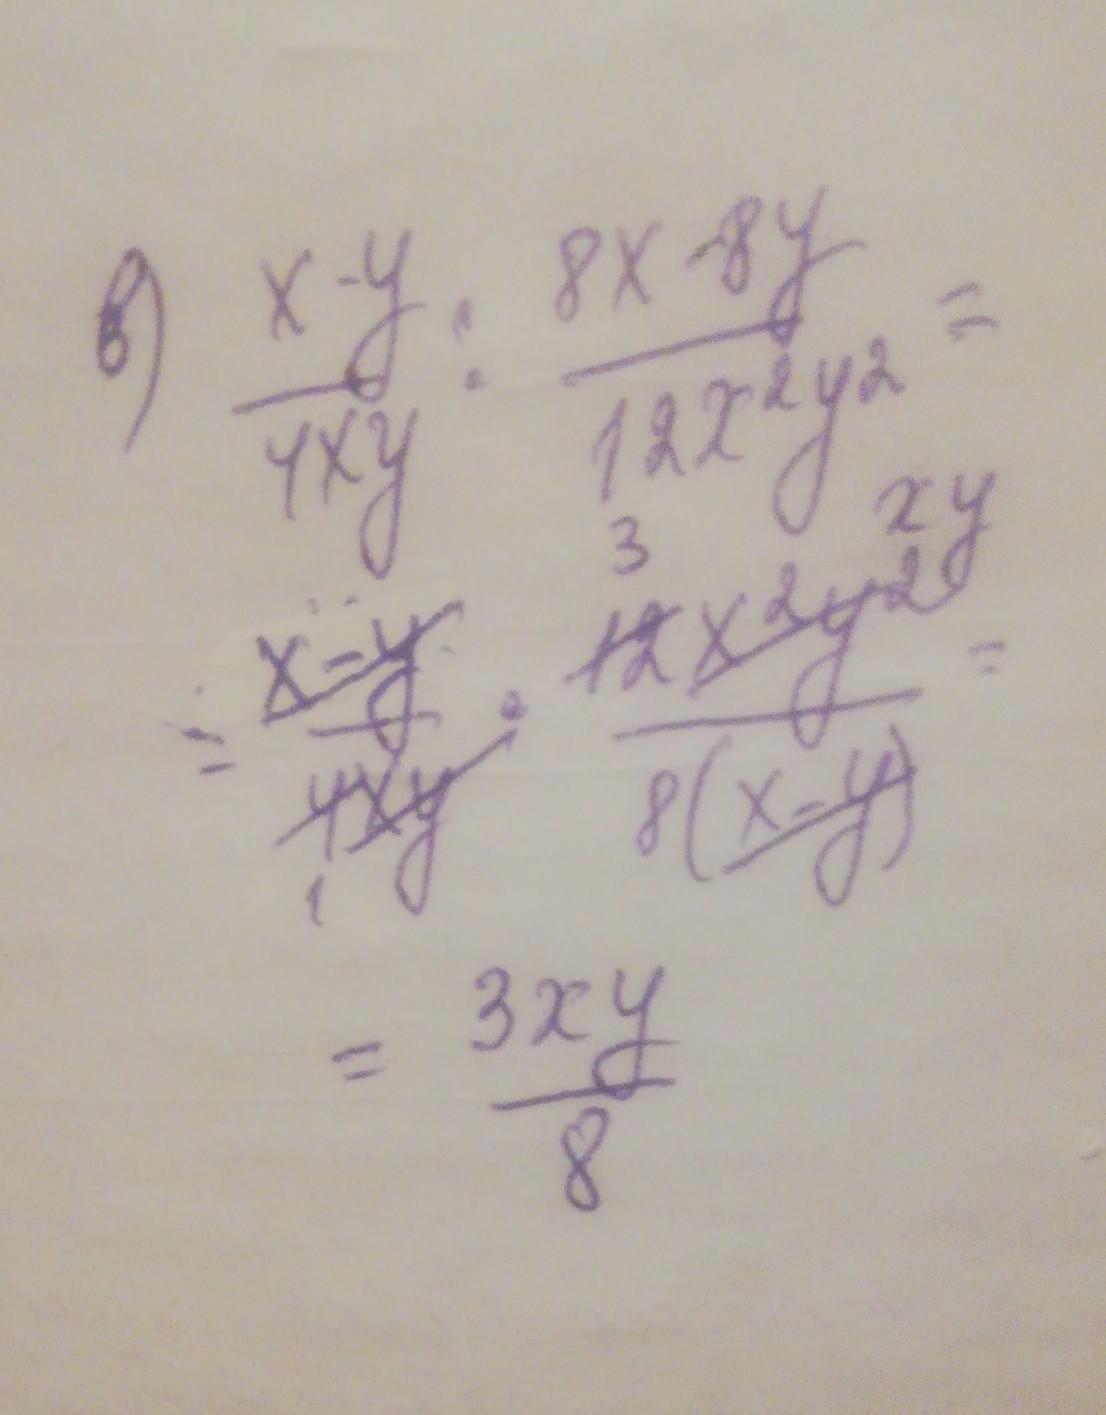 в) x-y/4xy : 8x-8y/12x²y² =
= x-y/4xy · 12x²y²/8(x-y) =
3 xy
1
= 3xy/8